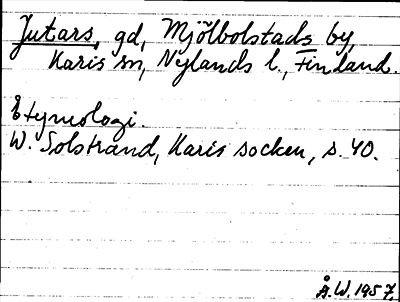 Jutars, gd, Mjölbolstads by,
Karis sn, Nylands l., Finland.
Etymologi.
W. Solstrand, Karis socken, s. 40.
Å.W. 1957.